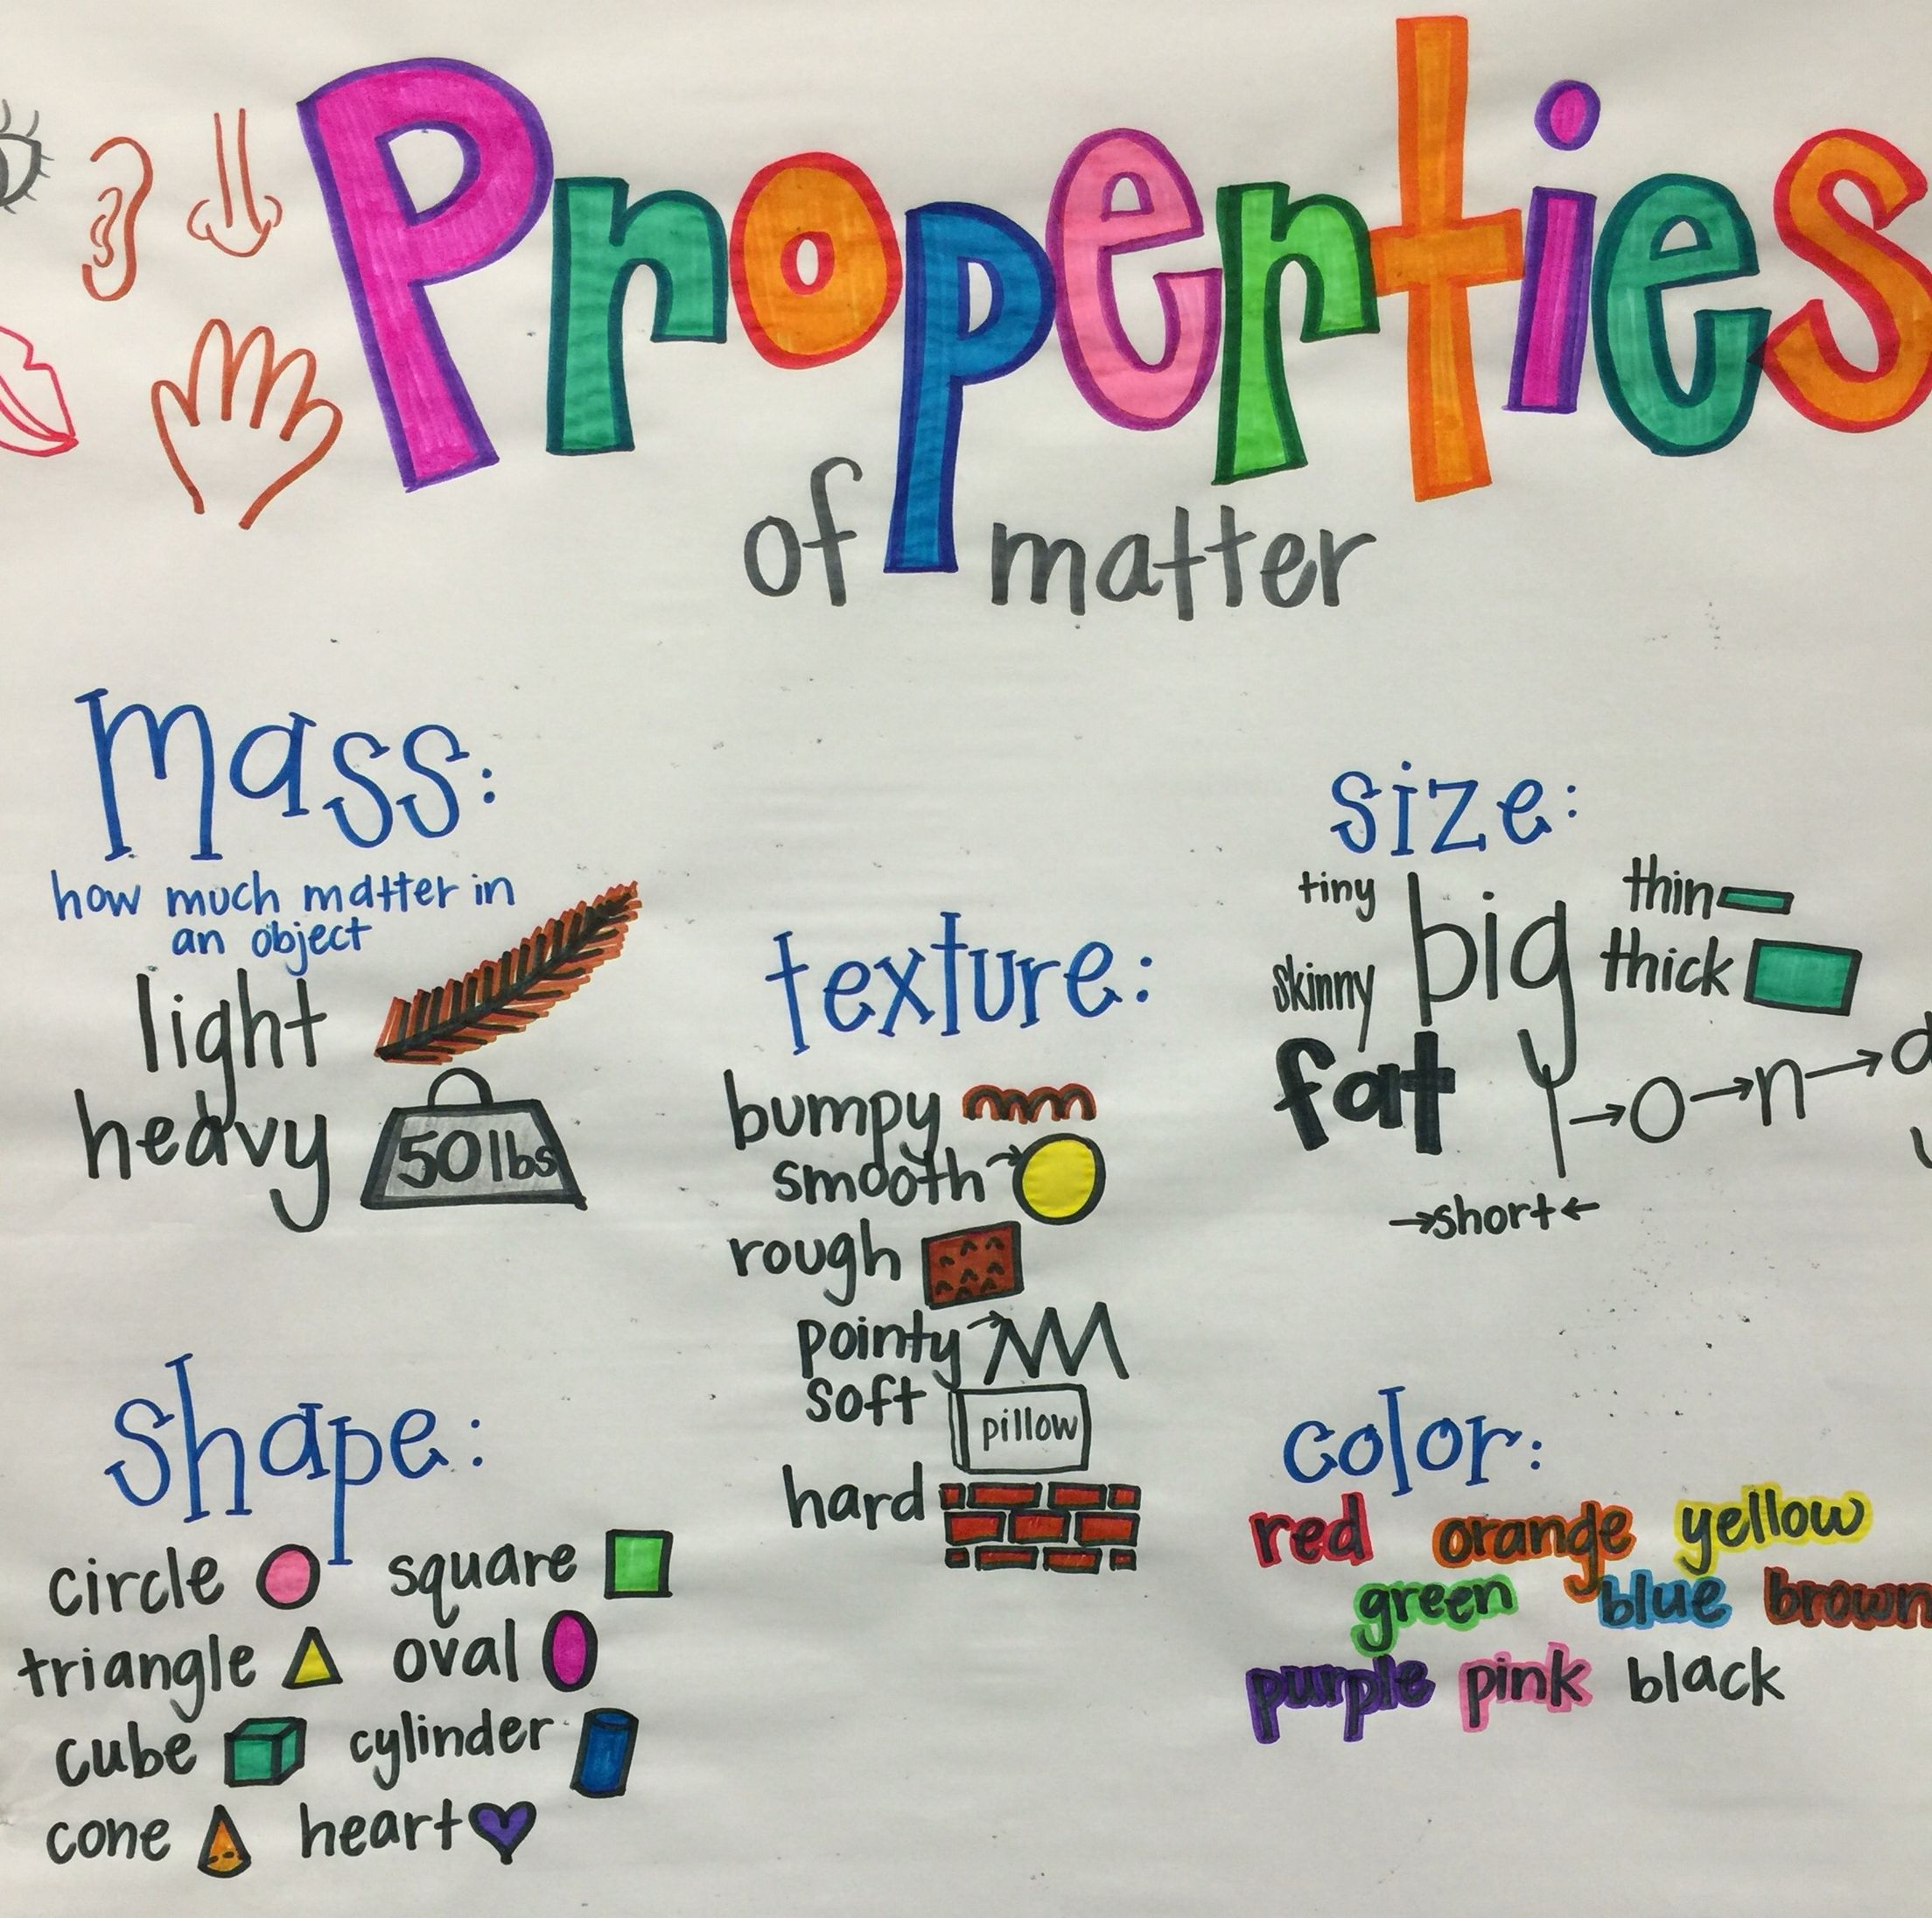 Properties
of matter
mass:
how much matter in
an object
light
heavy
50 lbs
texture:
bumpy
smooth
rough
pointy
soft
pillow
hard
size:
tiny big thin
skinny thick
fat
short
shape:
circle square
triangle oval
cube cylinder
cone heart
color:
red orange yellow
green blue brown
purple pink black